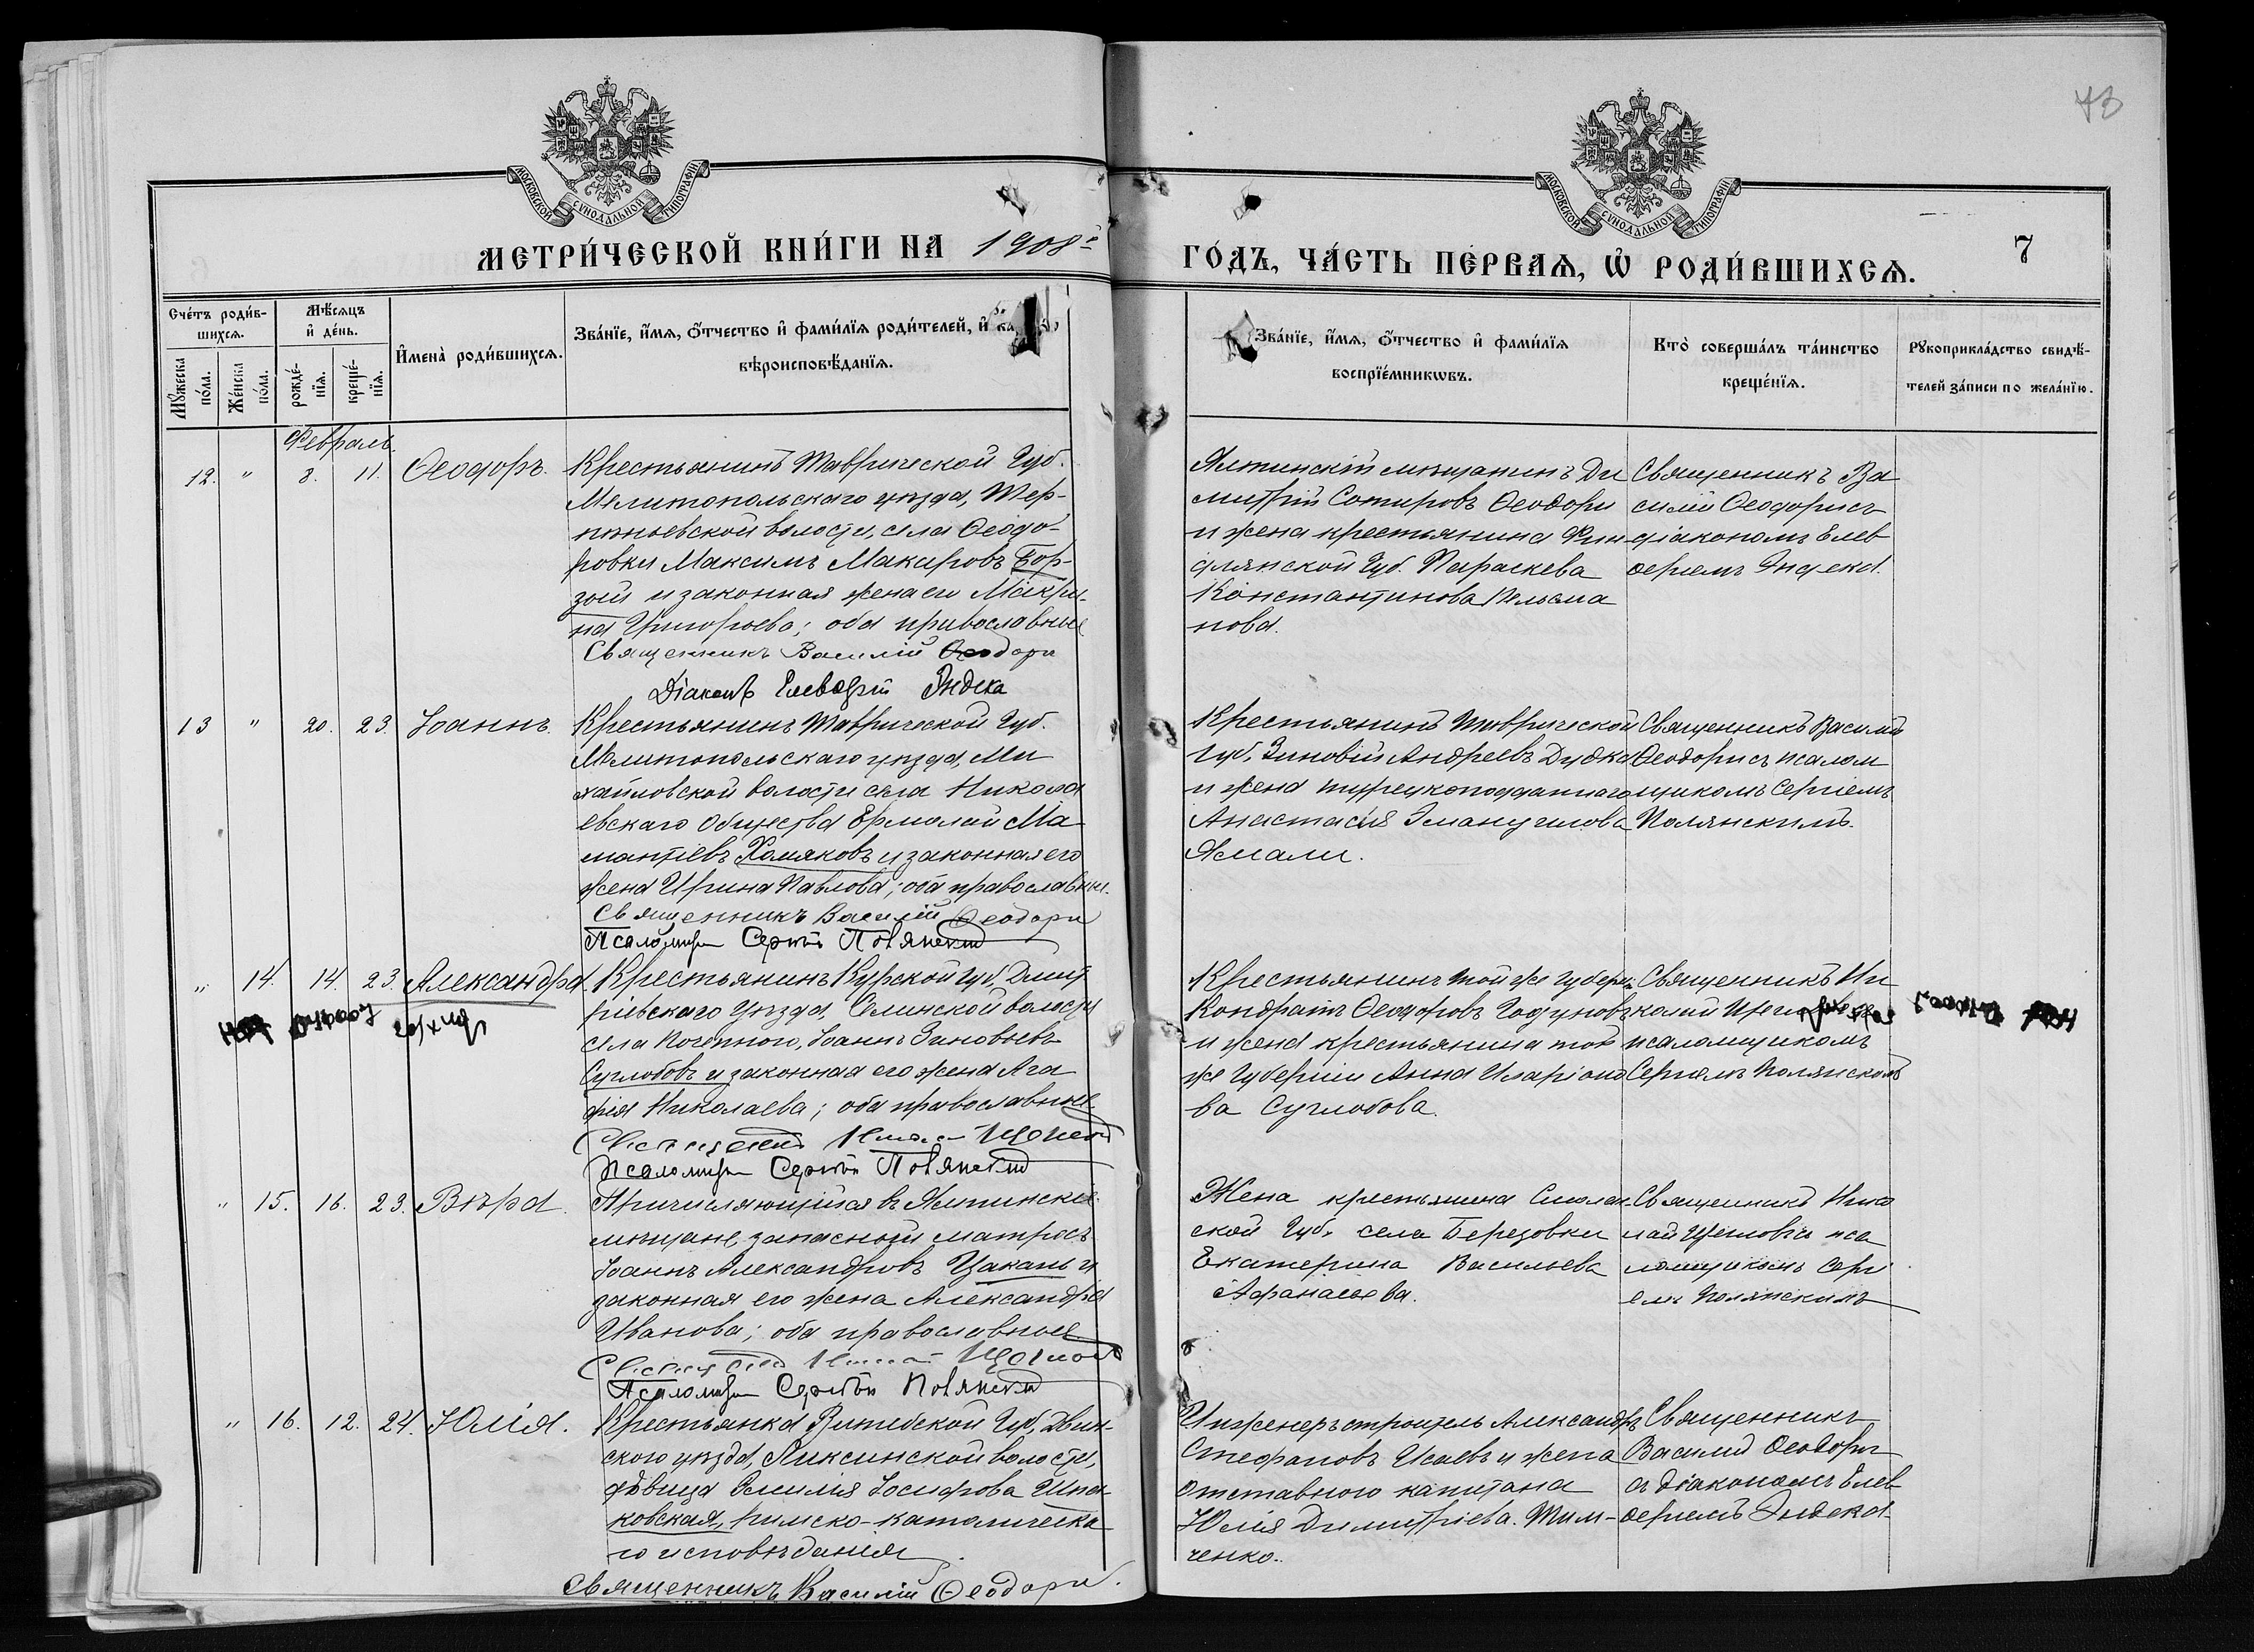 73
МОСКОВСКОЙ СѴНОДАЛЬНОЙ ТИПОГРАФІИ
МОСКОВСКОЙ СѴНОДАЛЬНОЙ ТИПОГРАФІИ
МЕТРИ́ЧЕСКОЙ КНИ́ГИ НА 1908 й
ГО́ДЪ, ЧА́СТЬ ПЕ́РВАЯ, Ѡ РОДИ́ВШИХСЯ.
7
Сче́тъ роди́в-
шихся.
Мꙋжеска по́ла.
Же́нска по́ла.
Мѣ́сяцъ
и де́нь.
рожде́-
нїя.
креще́-
нїя.
Имена̀ роди́вшихся.
Зва́нїе, и́мя, о́тчество и фами́лїя роди́телей, и ка
вѣроисповѣ́данїя.
Зва́нїе, и́мя, о́тчество и фами́лїя
воспрїе́мникѡвъ.
Кто̀ соверша́лъ та́инство
креще́нїя.
Рꙋкоприкла́дство свидѣ́-
телей за́писи по жела́нїю.
Февраль
12. " 8. 11. Ѳеодоръ.
Крестьянинъ Таврической Губ.
Мелитопольскаго уѣзда, Тер-
пѣньевской волости, села Ѳеодо-
ровки Максимъ Макаровъ Бор-
зый и законная жена его Макри-
на Григорьева; оба православные
Священникъ Василій Ѳеодори
Діаконъ Елевѳерій Эндека
Ялтинскій мѣщанинъ Ди
митрій Сотировъ Ѳеодори
и жена крестьянина Фин-
ляндской Губ. Параскева
Константинова
нова.
Священникъ Ва
силій Ѳеодори съ
діакономъ Елев
ѳеріемъ Эндека.
13 " 20. 23. Іоаннъ.
Крестьянинъ Таврической Губ.
Мелитопольскаго уѣзда, Ми
хайловской волости села Никола
евскаго Общества Ермолай Ма-
мантіевъ Хомяковъ и законная его
жена Ирина Павлова; оба православные.
Священникъ Василій Ѳеодори
Псаломщ Сергѣй Полянскій
Крестьянинъ Таврической
Губ. Зиновій Андреевъ Дудка
и жена турецкоподданнаго
Анастасія Эмануилова
Ясмали.
Священникъ Василій
Ѳеодори съ псалом
щикомъ Сергіемъ
Полянскимъ.
" 14. 14. 23. Александра
Крестьянинъ Курской Губ. Дмит
ріевскаго Уѣзда, Селинской волости
села Погепного, Іоаннъ Зиновьевъ
Суглобовъ и законная его жена Ага
фія Николаева; оба православные.
Псаломщ Сергѣй Полянскій
Крестьянинъ той же губерн.
Кондратъ Ѳеодоровъ Годуновъ
и жена крестьянина той
же Губерніи Анна Иларіоно
ва Суглобова.
Священникъ Ни
колай
псаломщикомъ
Сергіемъ Полянскимъ
" 15. 16. 23. Вѣра.
Причисляющійся въ Ялтинскіе
мѣщане, запасной матросъ
Іоаннъ Александровъ Цакань и
законная его жена Александра
Иванова; оба православные
Псаломщ Сергѣй Полянскій
Жена крестьянина Смолен
ской Губ. села Березовки
Екатерина Васильева
Афанасьева.
Священникъ Нико
лай Щегловъ съ пса
ломщикомъ Серг
емъ Полянскимъ
" 16. 12. 24. Юлія.
Крестьянка Витебской Губ., Двин-
ского уѣзда, Ликсинской волости,
дѣвица Эмилія Іосифова Шпа-
ковская, римско-католическа
го исповѣданія.
Священникъ Василій Ѳеодори.
Инженеръ строитель Александръ
Стефановъ Исаевъ и жена
отставного капитана
Юлія Димитріева. Тим-
ченко.
Священникъ
Василій Ѳеодори
съ діакономъ Елев
ѳеріемъ Эндека